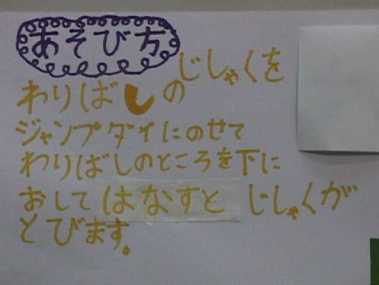 あそび方
じしゃくを
わりばしの
ジャンプダイにのせて
わりばしのところを下に
おしてはなすと じしゃくが
とびます。